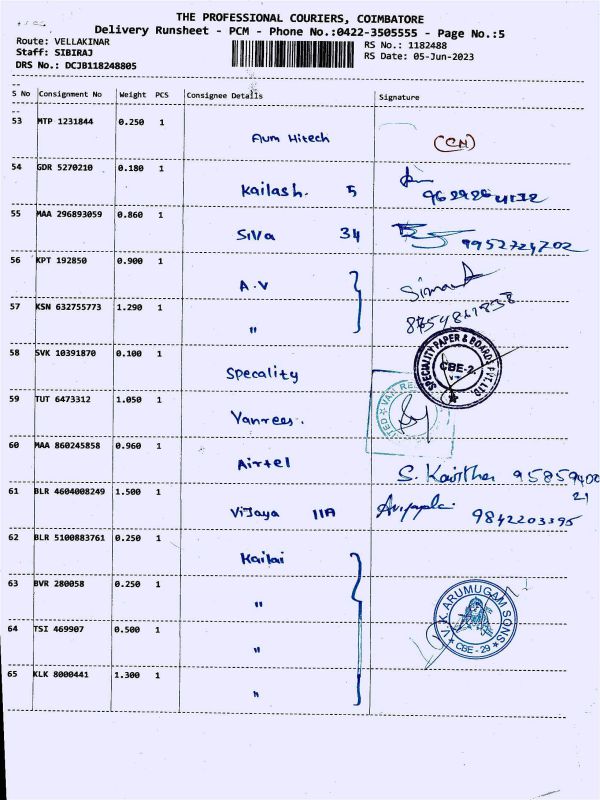 THE PROFESSIONAL COURIERS, COIMBATORE
Delivery Runsheet - PCM - Phone No.:0422-3505555 - Page No.:5
Route: VELLAKINAR
Staff: SIBIRAJ
DRS No.: DCJB118248805
RS No.: 1182488
RS Date: 05-Jun-2023
S No Consignment No Weight PCS Consignee Details Signature
53 MTP 1231844 0.250 1
Aum Hitech (CN)
54 GDR 5270210 0.180 1
Kailash. 5
55 MAA 296893059 0.860 1
Silva 34 9952724202
56 KPT 192850 0.900 1
A.V
57 KSN 632755773 1.290 1
"
58 SVK 10391870 0.100 1
Specality
SPECIALITY PAPER & BOARDS PVT. LTD. CBE-2.
59 TUT 6473312 1.050 1
Vanrees.
60 MAA 860245858 0.960 1
Airtel S. Kavitha 9585940021
61 BLR 4604008249 1.500 1
Vijaya 11A 9842203395
62 BLR 5100883761 0.250 1
Kailai
63 BVR 280058 0.250 1
"
V.K. ARUMUGAM SONS CBE-29
64 TSI 469907 0.500 1
"
65 KLK 8000441 1.300 1
"